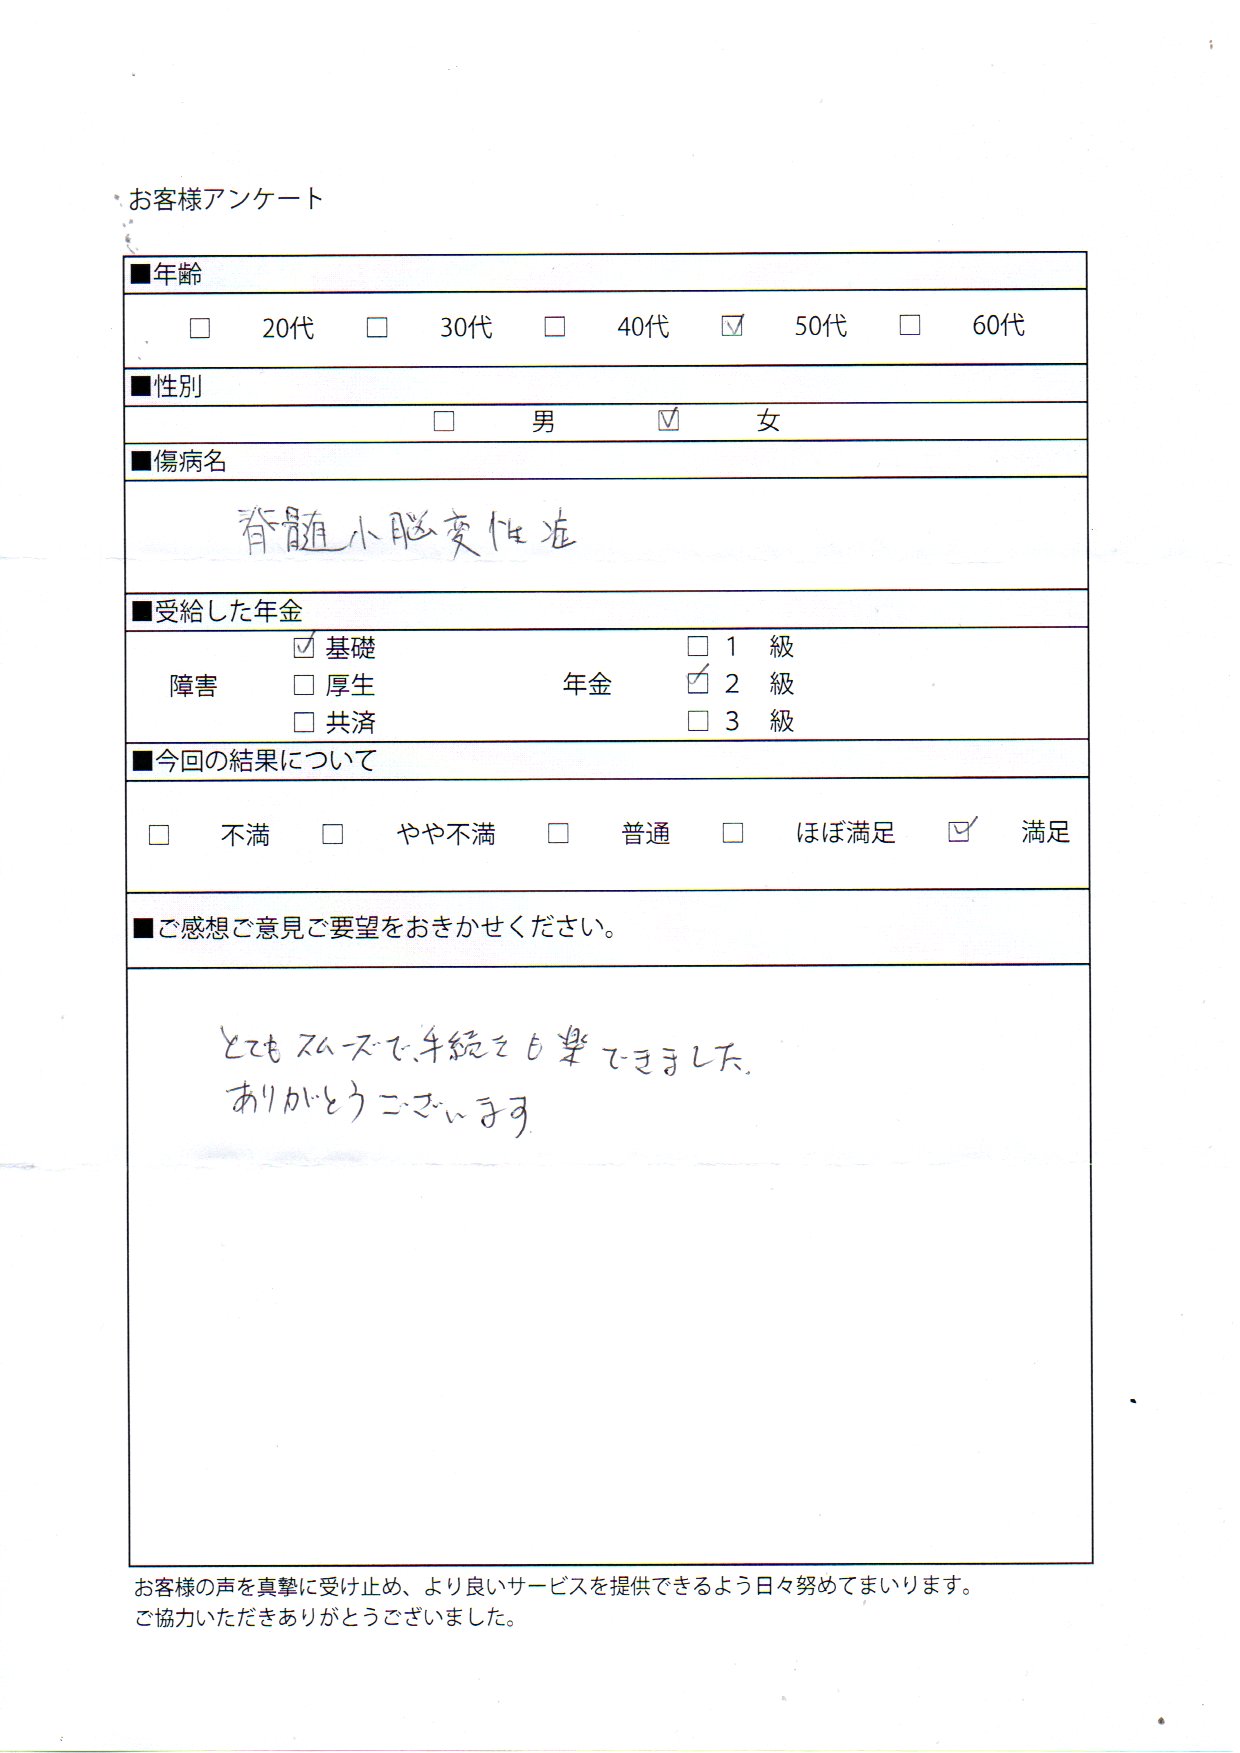 お客様アンケート
■年齢
□ 20代 □ 30代 □ 40代 ☑ 50代 □ 60代
■性別
□ 男 ☑ 女
■傷病名
脊髄小脳変性症
■受給した年金
☑ 基礎 □ 1 級
障害 □ 厚生 年金 ☑ 2 級
□ 共済 □ 3 級
■今回の結果について
□ 不満 □ やや不満 □ 普通 □ ほぼ満足 ☑ 満足
■ご感想ご意見ご要望をおきかせください。
とてもスムーズで、手続きも楽できました。
ありがとうございます
お客様の声を真摯に受け止め、より良いサービスを提供できるよう日々努めてまいります。
ご協力いただきありがとうございました。